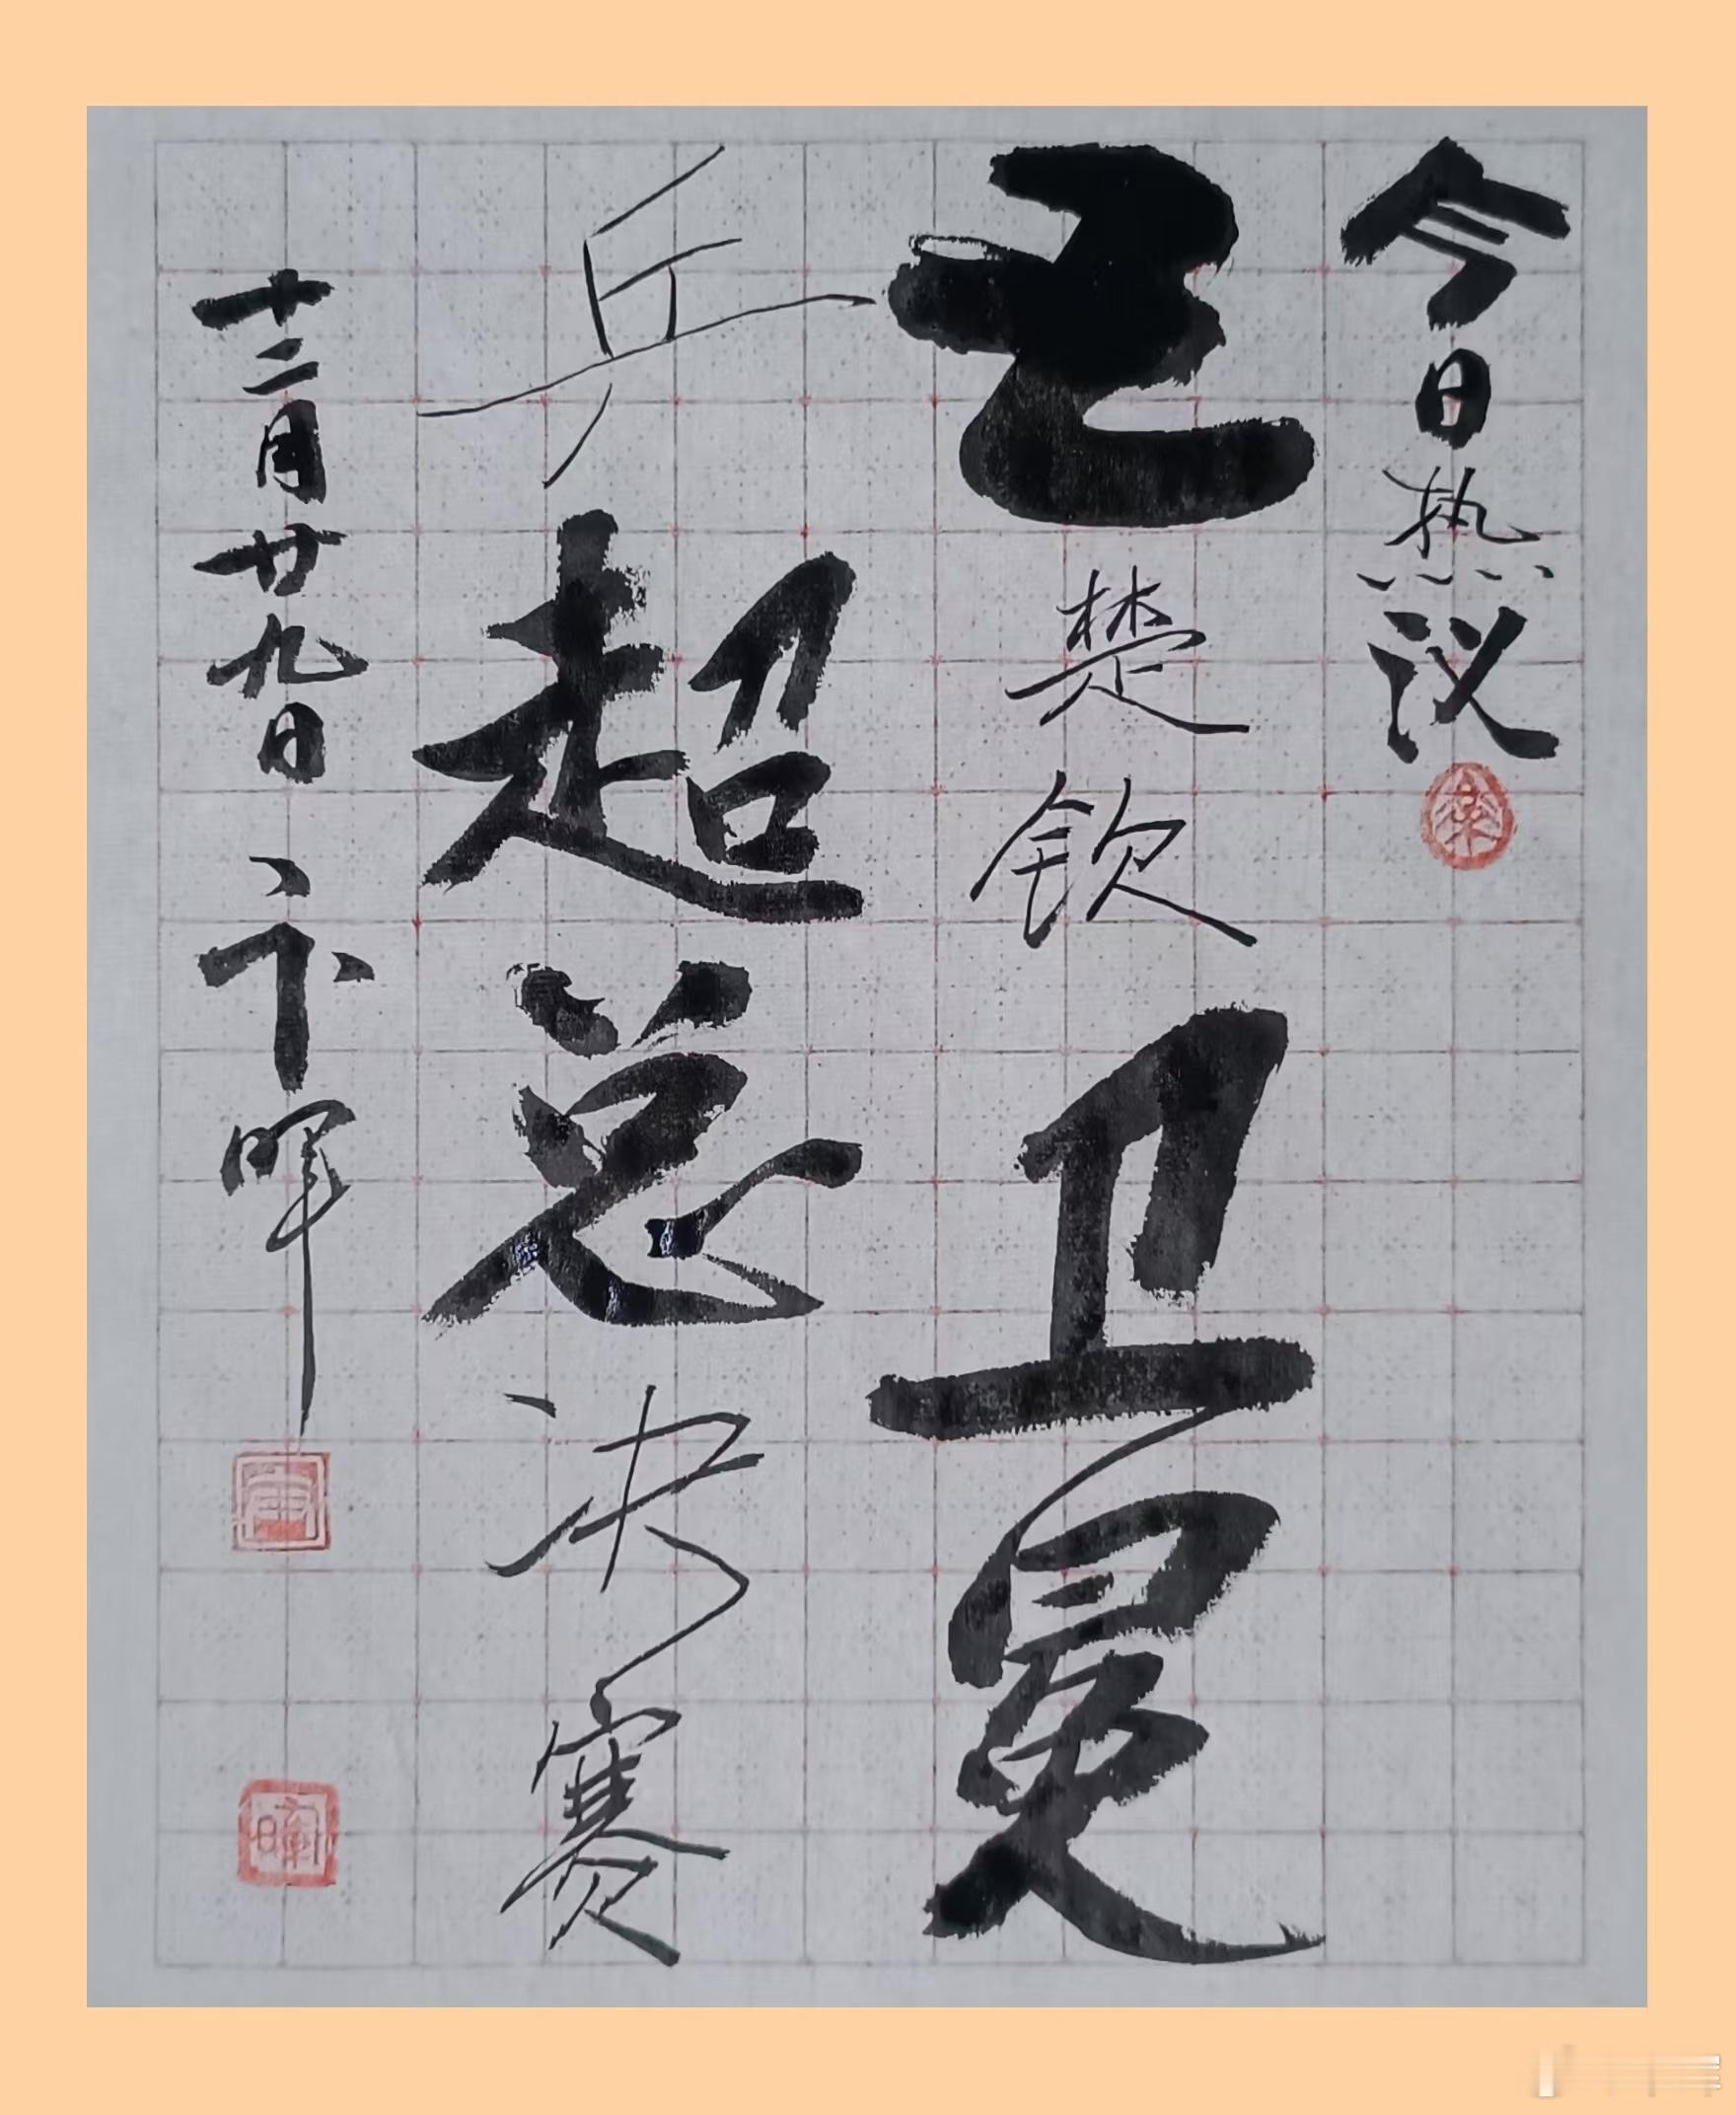 今日热议
王楚钦卫冕
乒超总决赛
十二月廿九日 卞晖
晖